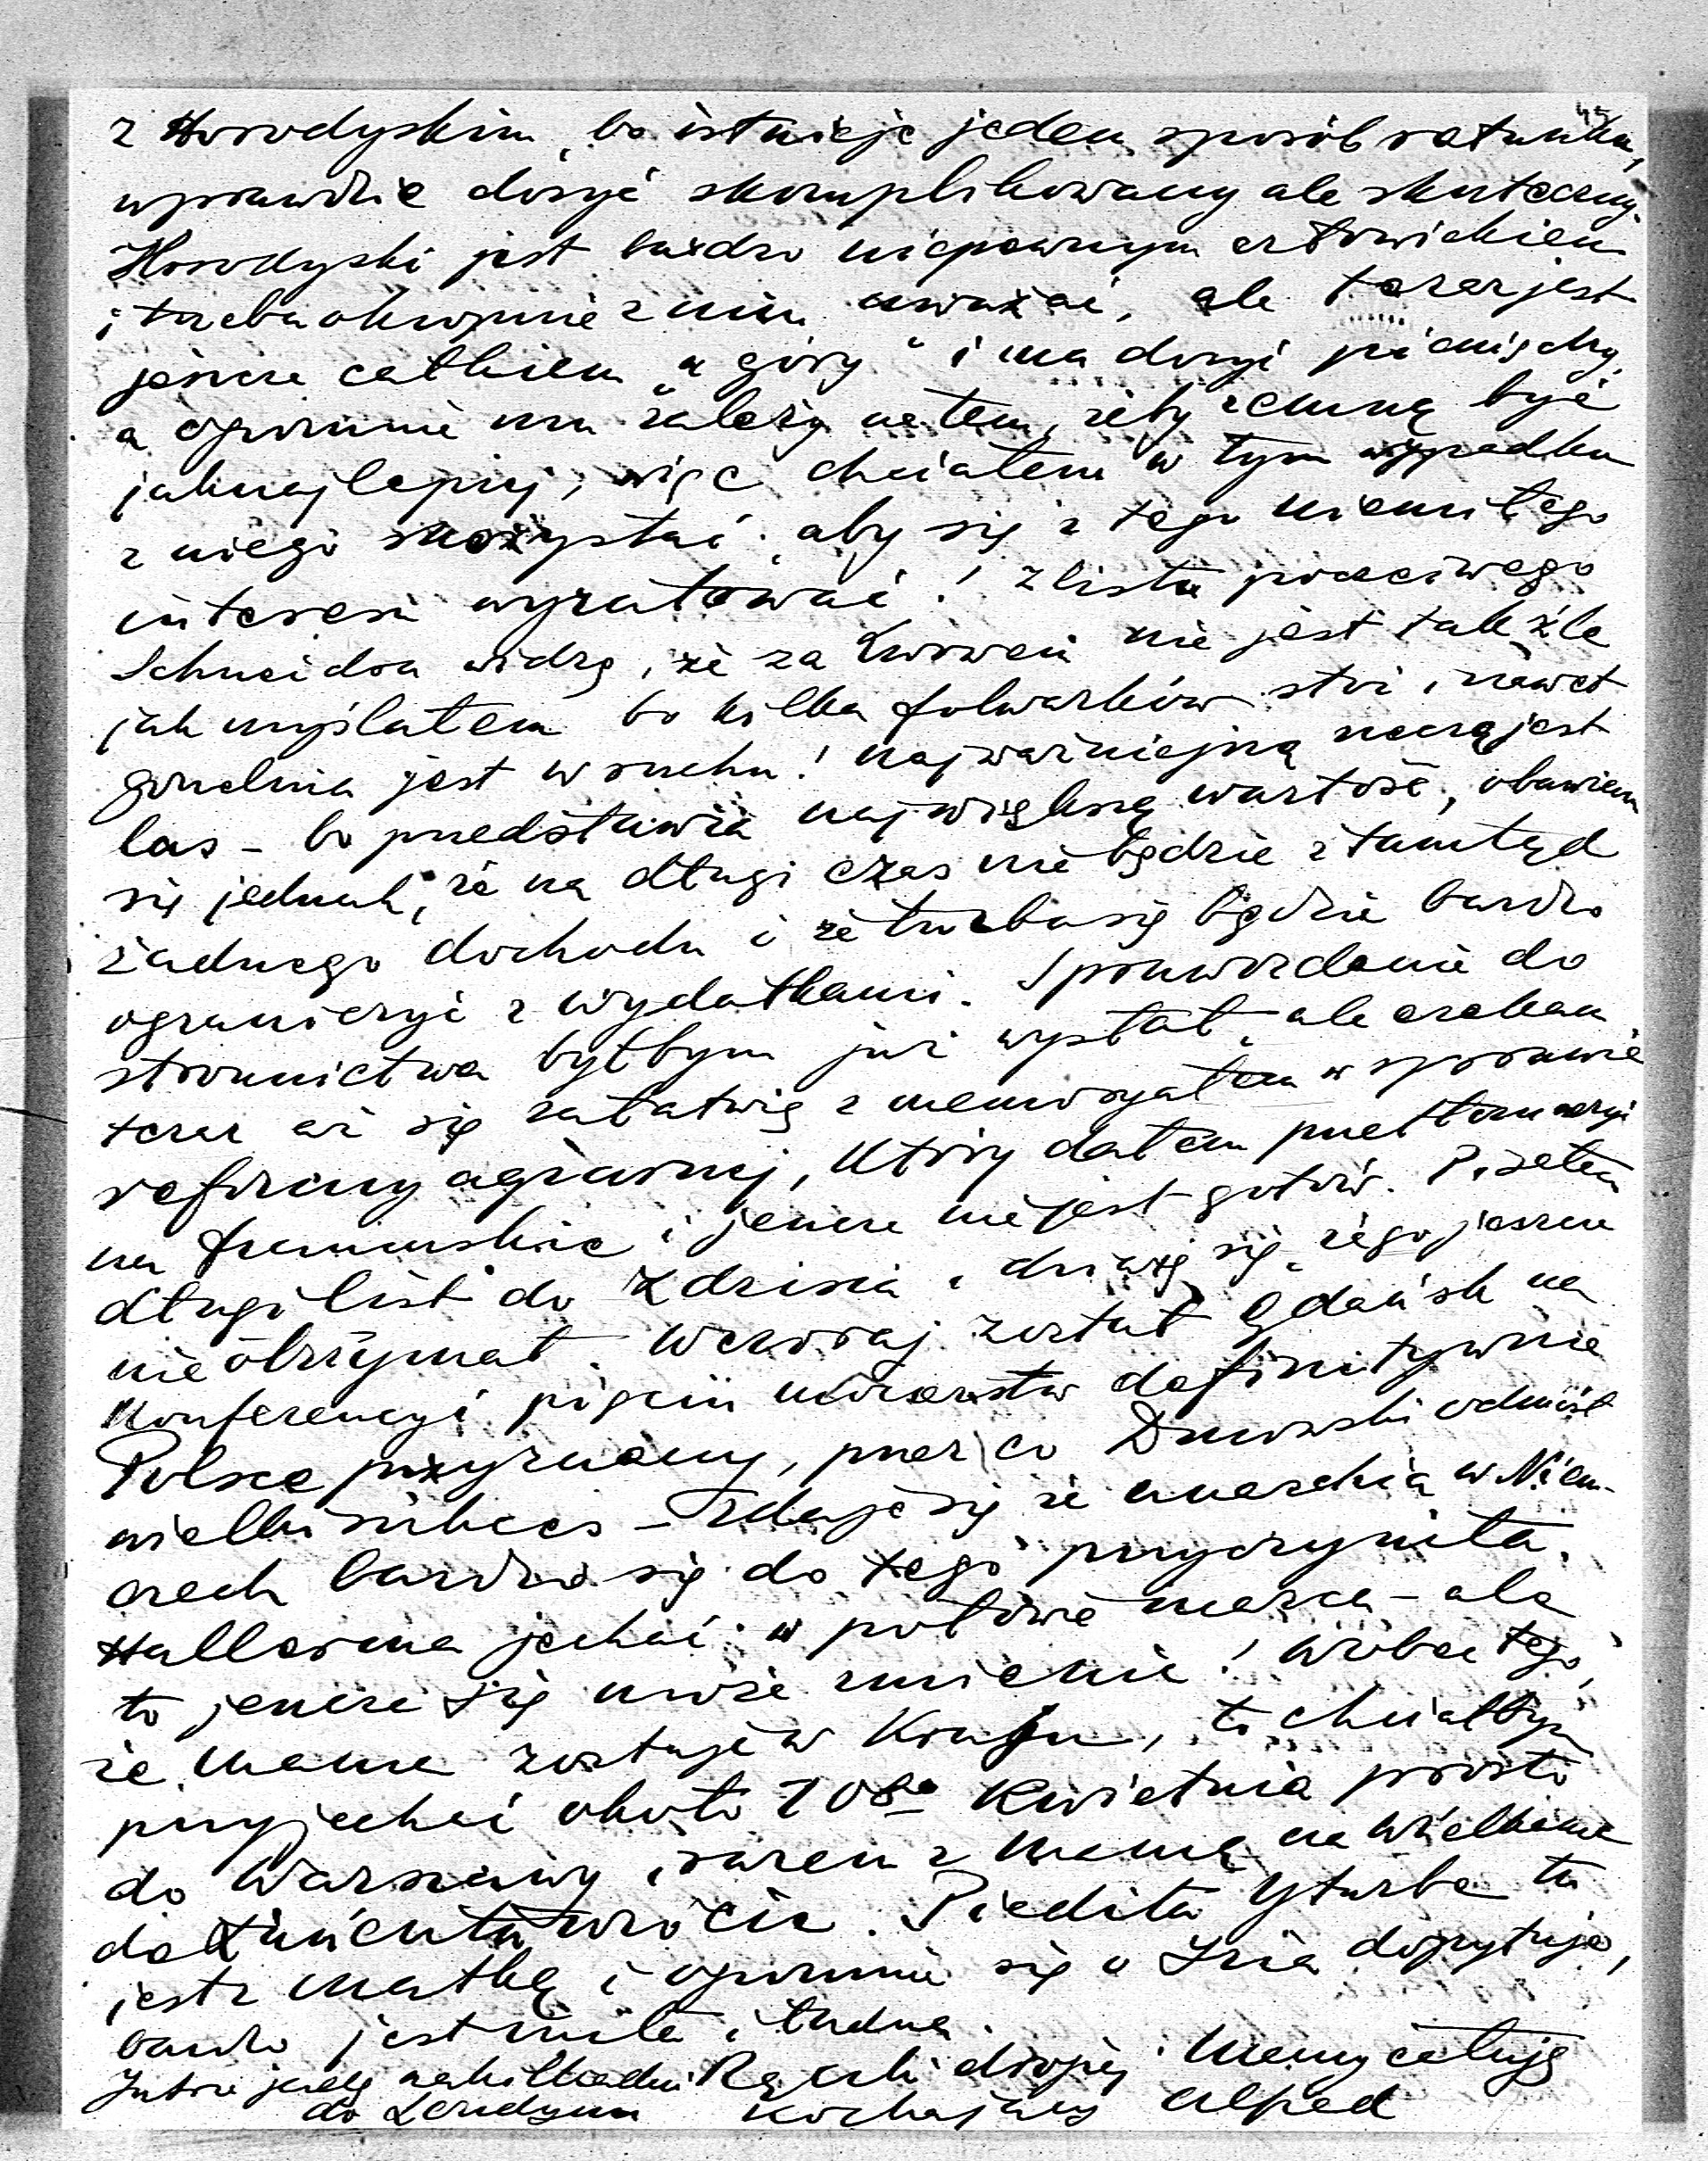 45
z Horodyskim, bo istnieje jeden sposób ratunku,
wprawdzie dosyć skomplikowany ale skuteczny.
Horodyski jest bardzo niepewnym człowiekiem
i trzeba okropnie z nim uważać, ale teraz jest
jeszcze całkiem "à góry" i ma dosyć pieniędzy,
a ogromnie mu zależy na tem, żeby zemną być
jaknajlepiej, więc chciałem w tym wypadku
z niego skożystać, aby się z tego niemiłego
interesu wyratować! Z listu poczciwego
Schneidra widzę, że za Lwowem nie jest tak źle
jak myślałem bo kilka folwarków stoi, nawet
gorzelnia jest w ruchu! Najważniejszą rzeczą jest
las – bo przedstawia największą wartość, obawiam
się jednak, że na długi czas nie będzie ztamtąd
żadnego dochodu i że trzeba się będzie bardzo
ograniczyć z wydatkami. Sprawozdanie do
stronnictwa byłbym już wysłał, ale czekam
teraz aż się załatwię z memoryałem w sprawie
reformy agrarnej, który dałem przetłomaczyć
na francuskie i jeszcze nie jest gotów. Pisałem
długi list do Zdzisia, dziwię się, że go jeszcze
nie otrzymał. Wczoraj został Gdańsk na
Konferencyi pięciu mocarstw definitywnie
Polsce przyznany, przez co Dmowski odniósł
wielki sukces – Zdaje się że anarchia w Niem-
czech bardzo się do tego przyczyniła.
Haller ma jechać w połowie marca – ale
to jeszcze się może zmienić! Wobec tego,
że Mama zostaje w Kraju, to chciałbym
przyjechać około 10go Kwietnia prosto
do Warszawy i razem z Mamą na Wielkanoc
do Łańcuta wrócić. Piedita Yturbe tu
jest z matką i ogromnie się o Izia dopytuje,
bardzo jest miła i ładna.
Rączki drogiej Mamy całuję
Kochający Alfred
Jutro jadę na kilka dni
do Londynu